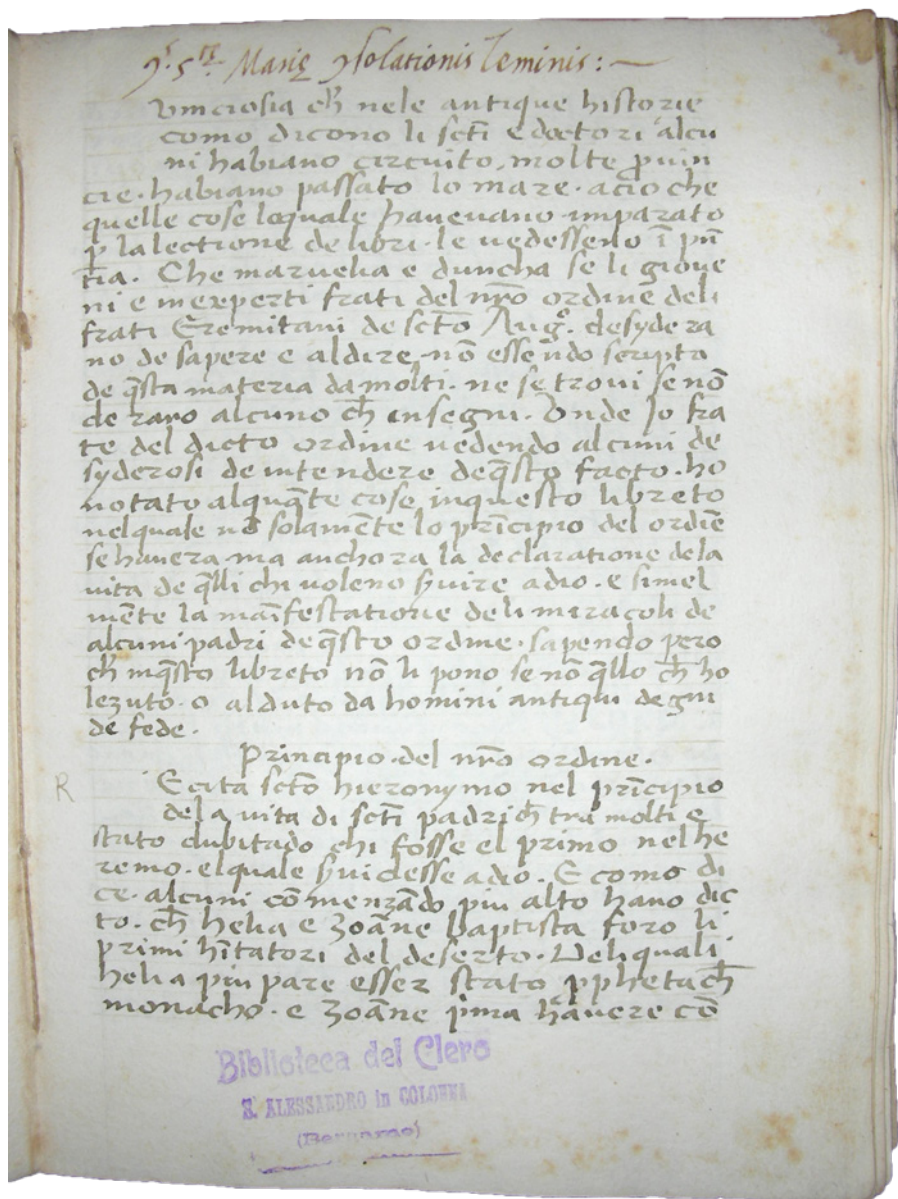 Marię ɔsolationis Leminis:
vmciosia ch̄ nele antique historie
como dicono li scti e doctori alcu
ni habiano circuito, molte ꝓuin
cie. habiano passato lo mare. acio che
quelle cose lequale haueuano imparato
ꝑ la lectione de libri. le uedesseno ī pn̄
tia. Che maruelia e duncha se li gioue
ni e inexperti frati del nrō ordine deli
frati Eremitani de sctō Augº. desydera
no de sapere e aldire, nō essendo scripto
de q̄sta materia da molti. ne se troui se nō
de raro alcuno ch̄ insegni. Onde Io fra
te del dicto ordine uedendo alcuni de
syderosi de intendere de q̄sto facto. ho
notato alquāte cose inquesto libreto
nelquale nō solamēte lo prīcipio del ordīe
se hauera. ma anchora la declaratione dela
uita de q̄lli chi uoleno ẜuire a dio. e simel
mēte la māifestatione deli miracoli de
alcuni padri de q̄sto ordine. sapendo pero
ch̄ in q̄sto libreto nō li pono se nō q̄llo ch̄ ho
lezuto. o alduto da homini antiqui degni
de fede.
Principio. del nrō ordine.
R
Ecita sctō hieronymo nel prīcipio
dela uita di sctī padri ch̄ tra molti e
stato dubitado chi fosse el primo nel he
remo. elquale ẜuidesse a dio. E como di
ce. alcuni cōmenzādo piu alto hano dic
to. ch̄ helia e Zoāne baptista foro li
primi hītatori del deserto. Deli quali
helia piu pare esser stato ꝓpheta ch̄
monacho. e Zoāne pima hauere cō
Biblioteca del Clero
S. ALESSANDRO in COLONNA
(Bergamo)